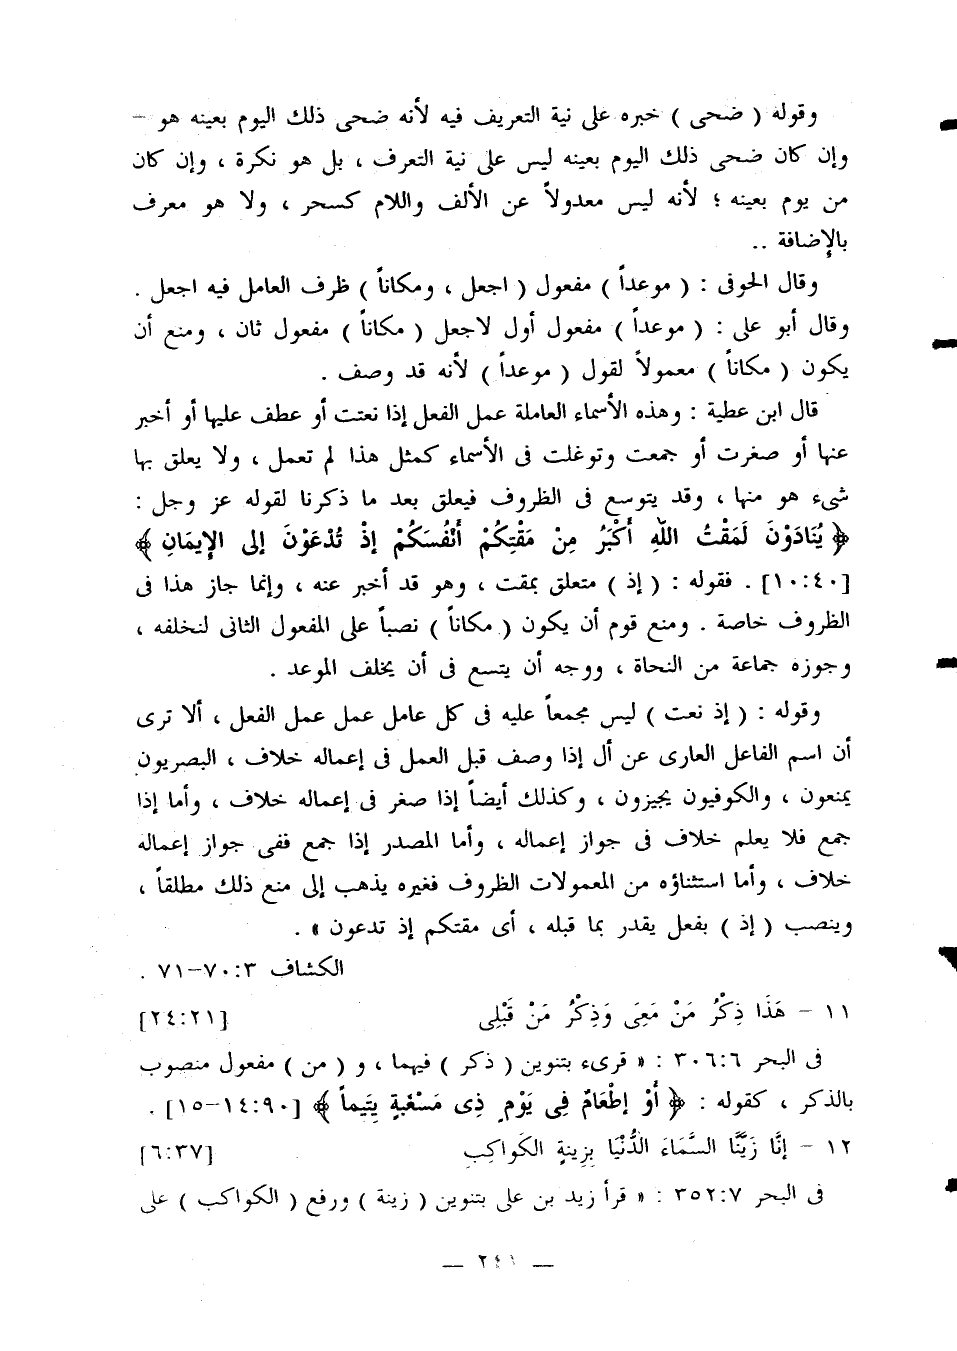 وقوله ( ضحى ) خبره على نية التعريف فيه لأنه ضحى ذلك اليوم بعينه هو –
وإن كان ضحى ذلك اليوم بعينه ليس على نية التعرف ، بل هو نكرة ، وإن كان
من يوم بعينه ؛ لأنه ليس معدولاً عن الألف واللام كسحر ، ولا هو معرف
بالإضافة ..
وقال الحوفى : ( موعداً ) مفعول ( اجعل ، ومكاناً ) ظرف العامل فيه اجعل .
وقال أبو على : ( موعداً ) مفعول أول لاجعل ( مكاناً ) مفعول ثان ، ومنع أن
يكون ( مكاناً ) معمولاً لقول ( موعداً ) لأنه قد وصف .
قال ابن عطية : وهذه الأسماء العاملة عمل الفعل إذا نعتت أو عطف عليها أو أخبر
عنها أو صغرت أو جمعت وتوغلت فى الأسماء كمثل هذا لم تعمل ، ولا يعلق بها
شىء هو منها ، وقد يتوسع فى الظروف فيعلق بعد ما ذكرنا لقوله عز وجل :
﴿ يُنَادَوْنَ لَمَقْتُ اللهِ أَكْبَرُ مِنْ مَقْتِكُمْ أَنْفُسَكُمْ إِذْ تُدْعَوْنَ إلى الإيمَانِ ﴾
[١٠:٤٠] . فقوله : ( إذ ) متعلق بمقت ، وهو قد أخبر عنه ، وإنما جاز هذا فى
الظروف خاصة . ومنع قوم أن يكون ( مكاناً ) نصباً على المفعول الثانى لنخلفه ،
وجوزه جماعة من النحاة ، ووجه أن يتسع فى أن يخلف الموعد .
وقوله : ( إذ نعت ) ليس مجمعاً عليه فى كل عامل عمل عمل الفعل ، ألا ترى
أن اسم الفاعل العارى عن أل إذا وصف قبل العمل فى إعماله خلاف ، البصريون
يمنعون ، والكوفيون يجيزون ، وكذلك أيضاً إذا صغر فى إعماله خلاف ، وأما إذا
جمع فلا يعلم خلاف فى جواز إعماله ، وأما المصدر إذا جمع ففى جواز إعماله
خلاف ، وأما استثناؤه من المعمولات الظروف فغيره يذهب إلى منع ذلك مطلقاً ،
وينصب ( إذ ) بفعل يقدر بما قبله ، أى مقتكم إذ تدعون » .
الكشاف ٧٠:٣–٧١ .
١١ – هَذَا ذِكْرُ مَنْ مَعِىَ وَذِكْرُ مَنْ قَبْلِى [٢٤:٢١]
فى البحر ٣٠٦:٦ : « قرىء بتنوين ( ذكر ) فيهما ، و ( من ) مفعول منصوب
بالذكر ، كقوله : ﴿ أَوْ إطْعَامٌ فِى يَوْمٍ ذِى مَسْغَبةٍ يَتِيماً ﴾ [١٤:٩٠–١٥] .
١٢ – إنَّا زَيَّنَّا السَّمَاءَ الدُّنْيَا بِزِينةِ الكَواكِبِ [٦:٣٧]
فى البحر ٣٥٢:٧ : « قرأ زيد بن على بتنوين ( زينة ) ورفع ( الكواكب ) على
— ٢٤١ —